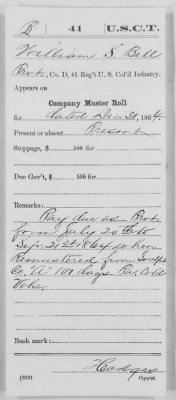 D 41 U.S.C.T.
William S. Bell
Co. D, 41 Reg't U. S. Col'd Infantry.
Appears on
Company Muster Roll
for dated Dec 31, 1864.
Present or absent Present
Stoppage, $ 100 for
Due Gov't, $ 100 for
Remarks:
Pay due as
from July 20th to
Sept. 21st 1864 when
Remustered from
Co. "A" 100 days Pa. Cold
Vols.
Book mark:
Hodges
(358) Copyist.